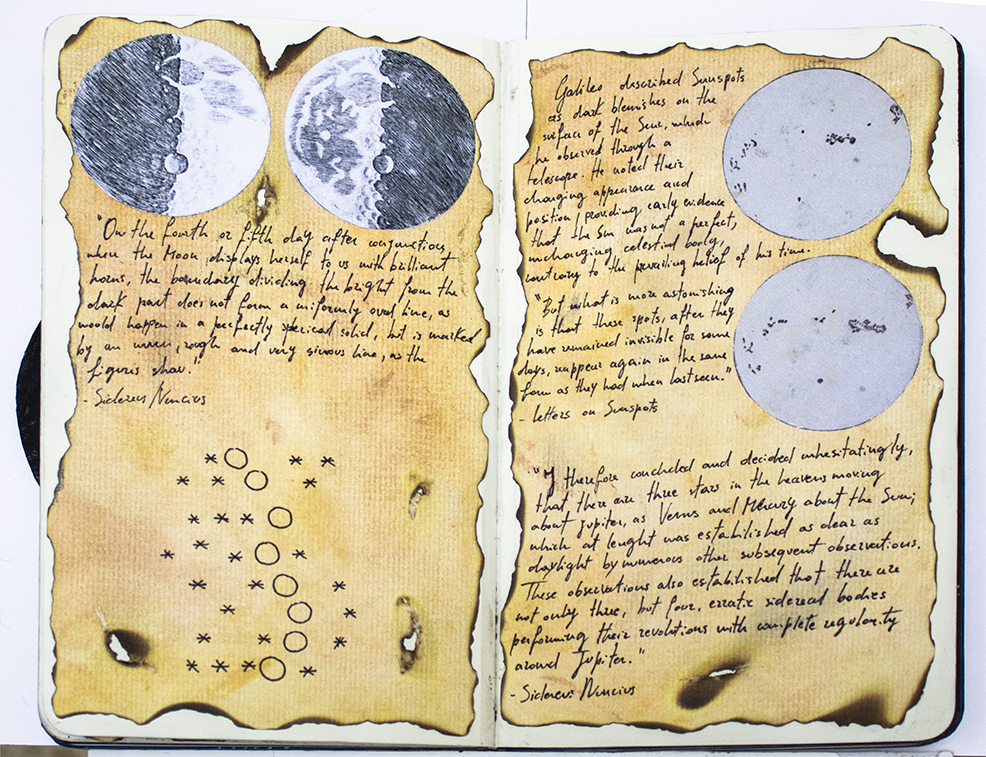 "On the fourth or fifth day after conjunction,
when the Moon displays herself to us with brilliant
horns, the boundary dividing the bright from the
dark part does not form a uniformly oval line, as
would happen in a perfectly sperical solid, but is marked
by an uneven, rough and very sinous line, as the
figures show."
- Sidereus Nuncius
Galileo described Sunspots
as dark blemishes on the
surface of the Sun, which
he observed through a
telescope. He noted their
changing appearance and
position, providing early evidence
that the Sun was not a perfect,
unchanging celestial body,
contrary to the prevailing belief of his time.
"But what is more astonishing
is that these spots, after they
have remained invisible for some
days, reappear again in the same
form as they had when last seen."
- Letters on Sunspots
"I therefore concluded and decided unhesitatingly,
that there are three stars in the heavens moving
about Jupiter, as Venus and Mercury about the Sun;
which at lenght was estabilished as clear as
daylight by numerous other subsequent observations.
These observations also estabilished that there are
not only three, but four, erratic sidereal bodies
performing their revolutions with complete regularity
around Jupiter."
- Sidereus Nuncius